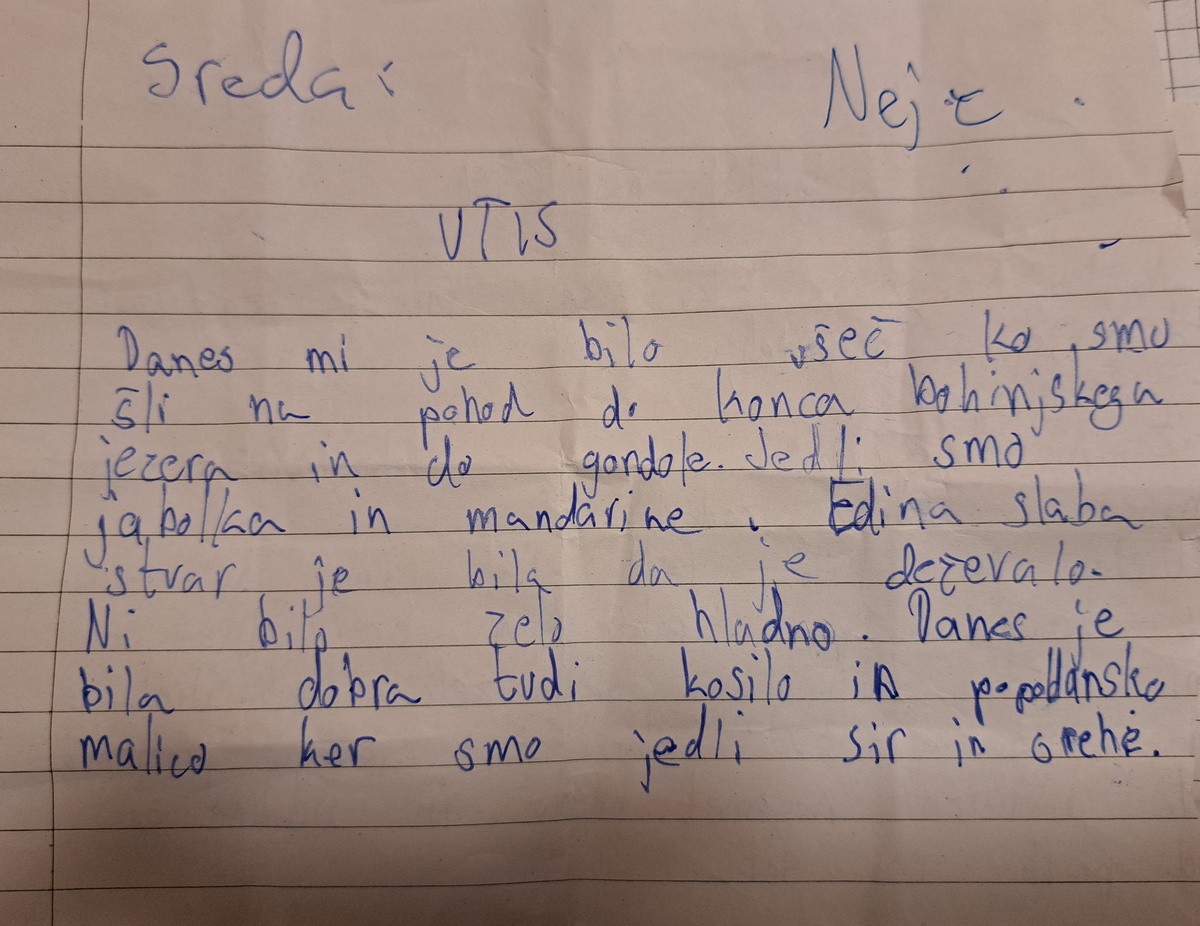 Sreda:
Nejc
VTIS
Danes mi je bilo všeč ko smo
šli na pohod do konca bohinjskega
jezera in do gondole. Jedli smo
jabolka in mandarine. Edina slaba
stvar je bila da je dezevalo.
Ni bilo zelo hladno. Danes je
bila dobra tudi kosilo in popoldansko
malico ker smo jedli sir in orehe.